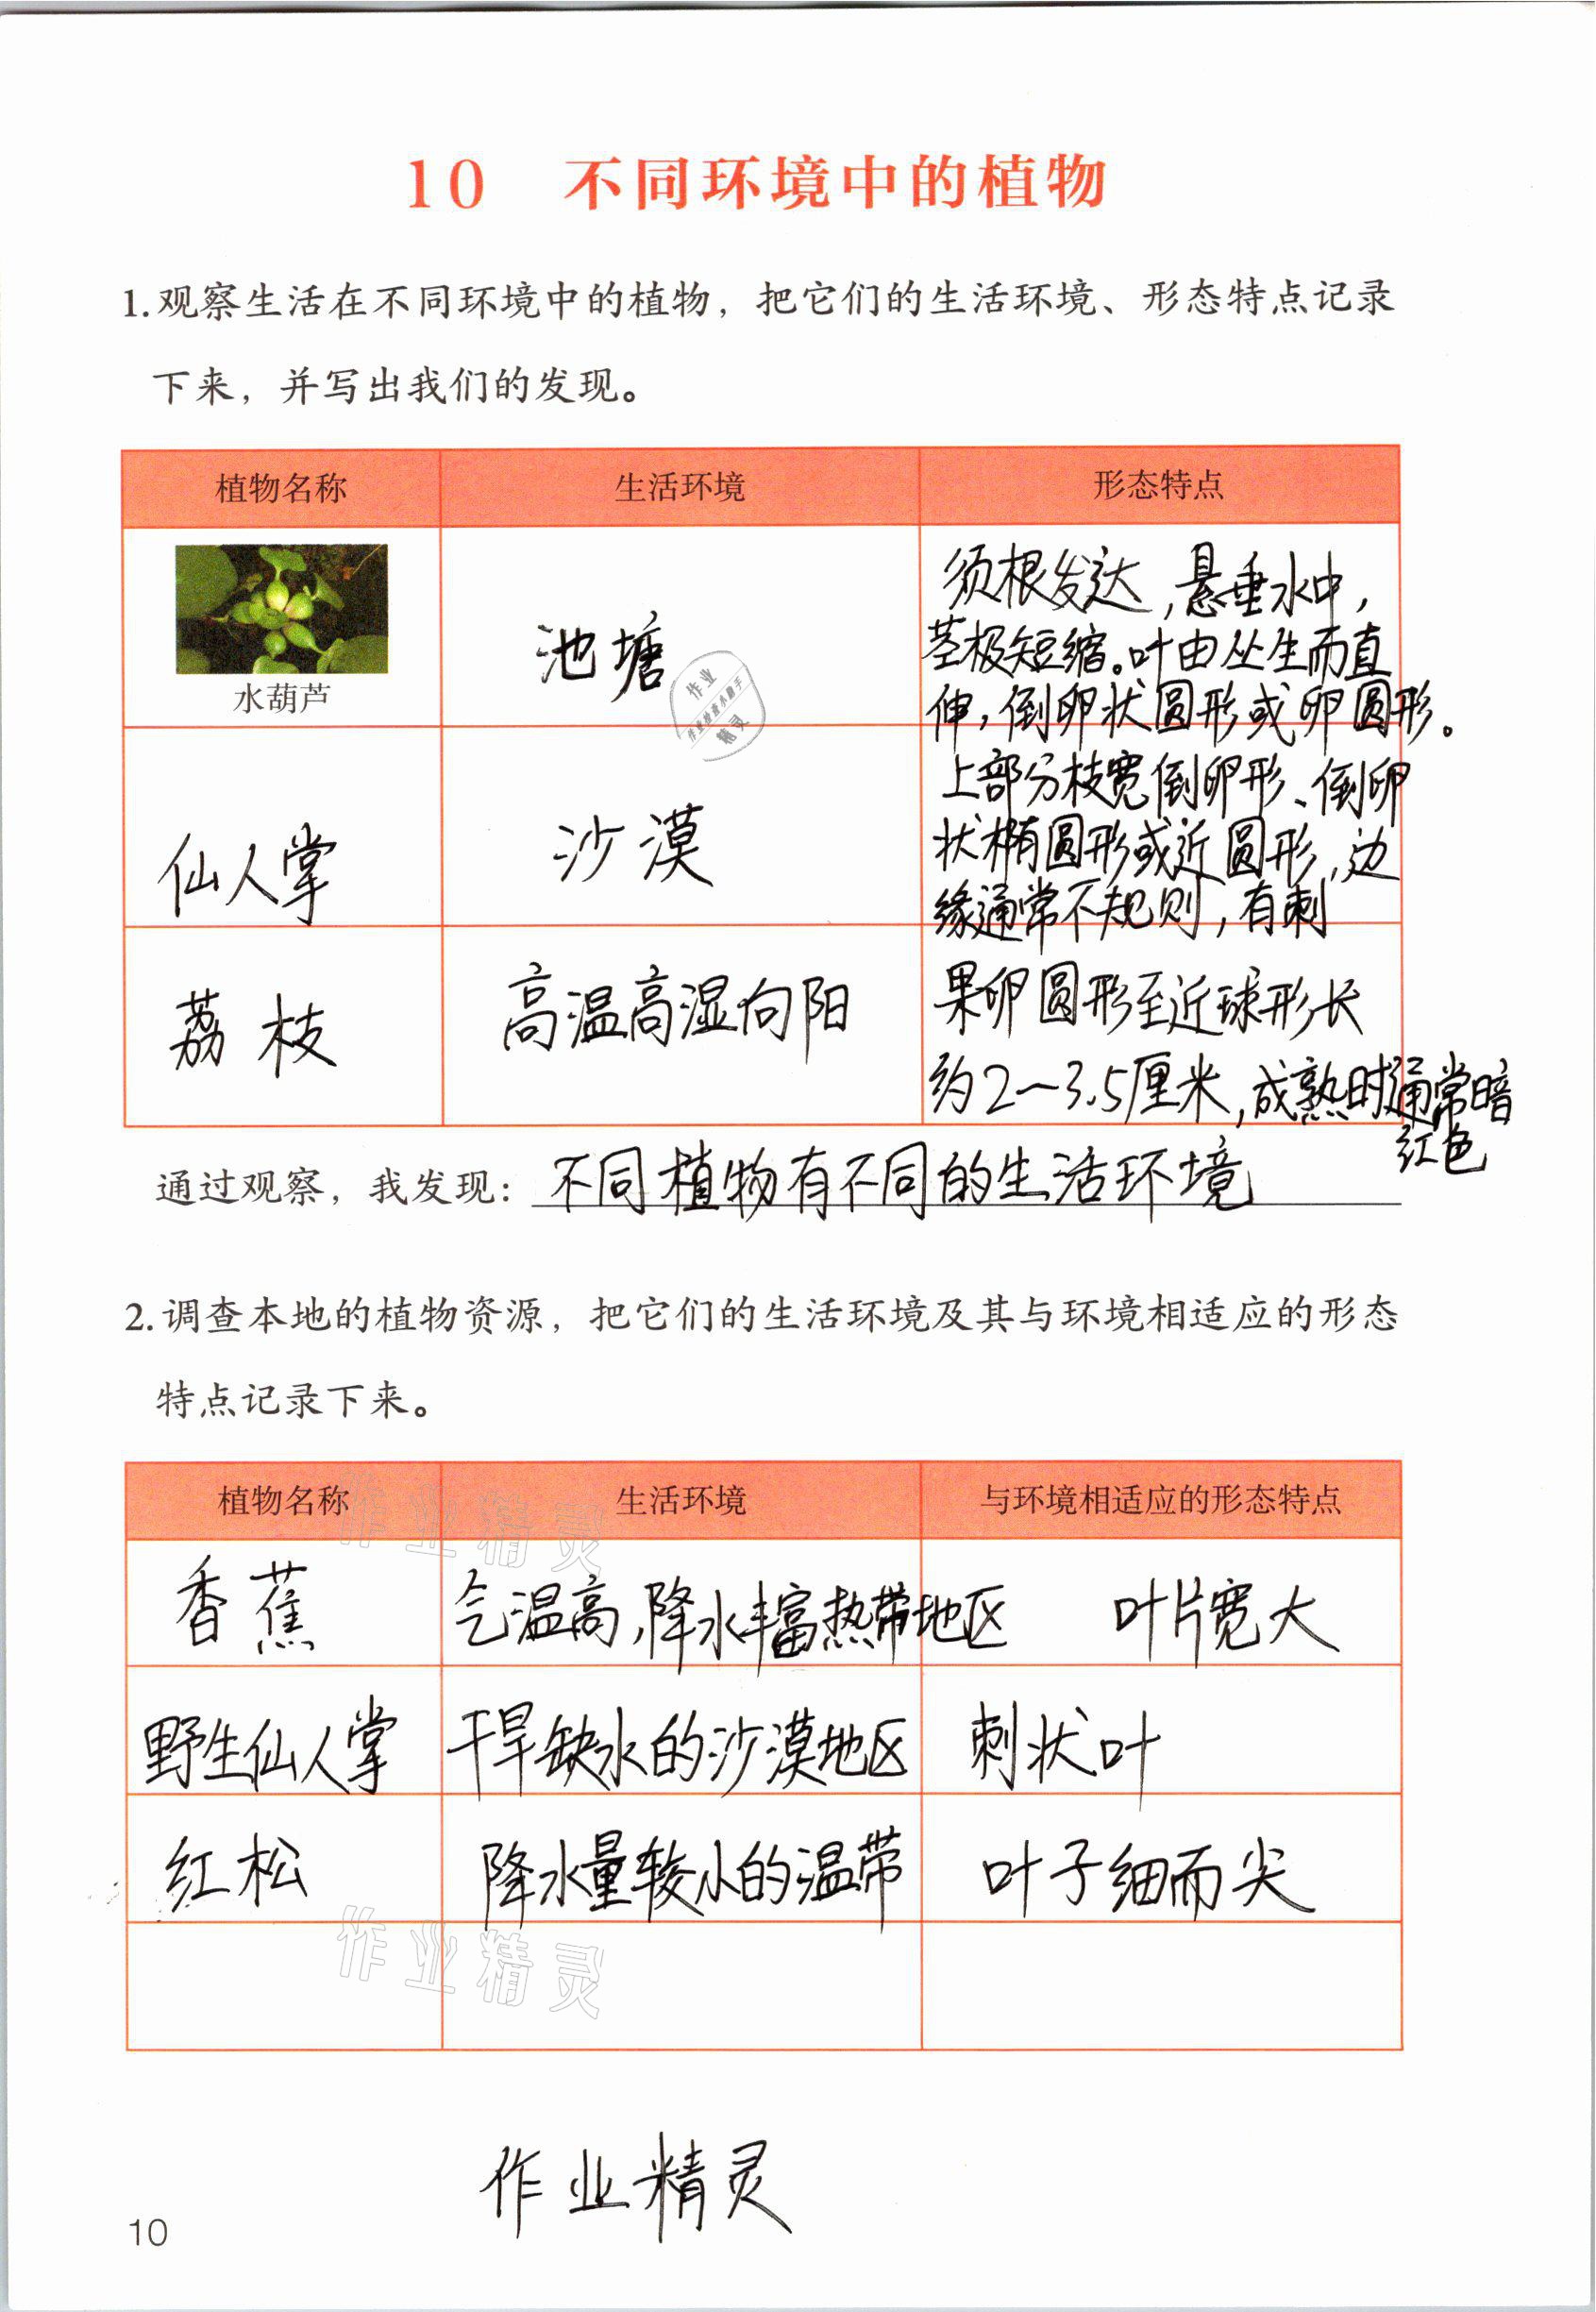 10 不同环境中的植物
1.观察生活在不同环境中的植物，把它们的生活环境、形态特点记录
下来，并写出我们的发现。
植物名称 生活环境 形态特点
水葫芦
池塘
作业
作业检查小助手
精灵
须根发达，悬垂水中，
茎极短缩。叶由丛生而直
伸，倒卵状圆形或卵圆形。
仙人掌
沙漠
上部分枝宽倒卵形、倒卵
状椭圆形或近圆形，边
缘通常不规则，有刺
荔枝
高温高湿向阳
果卵圆形至近球形长
约2~3.5厘米，成熟时通常暗
红色
通过观察，我发现：不同植物有不同的生活环境
2.调查本地的植物资源，把它们的生活环境及其与环境相适应的形态
特点记录下来。
植物名称 生活环境 与环境相适应的形态特点
作业精灵
香蕉 气温高，降水丰富热带地区 叶片宽大
野生仙人掌 干旱缺水的沙漠地区 刺状叶
红松 降水量较小的温带 叶子细而尖
作业精灵
作业精灵
10